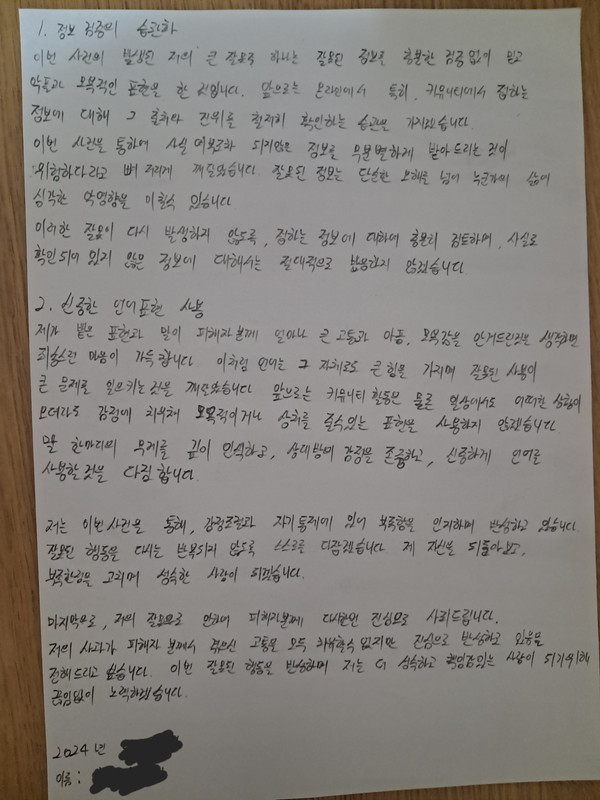 1. 정보 검증의 습관화
이번 사건의 발생된 저의 큰 잘못중 하나는 잘못된 정보를 충분한 검증없이 믿고
악플과 모욕적인 표현을 한 것입니다. 앞으로는 온라인에서 특히, 커뮤니티에서 접하는
정보에 대해 그 출처와 진위를 철저히 확인하는 습관을 가지겠습니다.
이번 사건을 통하여 사실여부조차 되지않은 정보를 무분별하게 받아드리는 것이
위험하다라고 뼈저리게 깨달았습니다. 잘못된 정보는 단순한 오해를 넘어 누군가의 삶에
심각한 악영향을 미칠수 있습니다.
이러한 잘못이 다시 발생하지 않도록, 접하는 정보에 대하여 충분히 검토하며, 사실로
확인되어 있지 않은 정보에 대해서는 절대적으로 반응하지 않겠습니다.
2. 신중한 언어표현 사용
제가 뱉은 표현과 말이 피해자분께 얼마나 큰 고통과 아픔, 모욕감을 안겨드린것을 생각하면
죄송스런 마음이 가득합니다. 이처럼 언어는 그 자체로도 큰 힘을 가지며 잘못된 사용이
큰 문제를 일으키는것을 깨달았습니다. 앞으로는 커뮤니티 활동은 물론 일상에서도 어떠한 상황이
오더라도 감정에 치우쳐 모욕적이거나 상처를 줄수있는 표현을 사용하지 않겠습니다.
말 한마디의 무게를 깊이 인식하고, 상대방의 감정을 존중하고, 신중하게 언어를
사용할것을 다짐합니다.
저는 이번사건을 통해, 감정조절과 자기통제에 있어 부족함을 인지하며 반성하고 있습니다.
잘못된 행동을 다시는 반복되지 않도록 스스로를 다잡겠습니다. 제 자신을 되돌아보고,
부족한점을 고치며 성숙한 사람이 되겠습니다.
마지막으로, 저의 잘못으로 인하여 피해자분께 다시한번 진심으로 사죄드립니다.
저의 사과가 피해자분께서 겪으신 고통을 모두 치유할수 없지만 진심으로 반성하고 있음을
전해드리고 싶습니다. 이번 잘못된 행동을 반성하며 저는 더 성숙하고 책임감있는 사람이 되기위해
끊임없이 노력하겠습니다.
2024년
이름 :